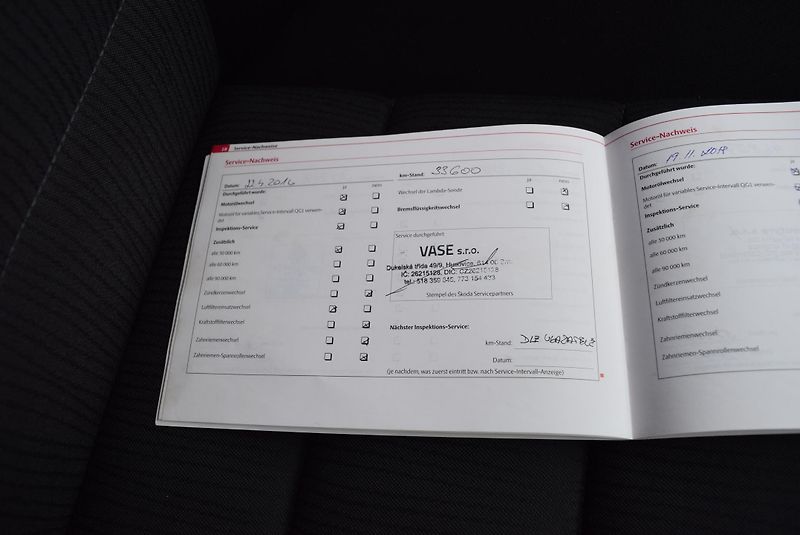 14 Service-Nachweise
Service-Nachweis
Datum: 22.4.2016
km-Stand: 33600
ja nein
ja nein
Durchgeführt wurde:
Motorölwechsel
Motoröl für variables Service-Intervall QG1 verwendet
Inspektions-Service
Zusätzlich
alle 30 000 km
alle 60 000 km
alle 90 000 km
Zündkerzenwechsel
Luftfiltereinsatzwechsel
Kraftstofffilterwechsel
Zahnriemenwechsel
Zahnriemen-Spannrollenwechsel
Wechsel der Lambda-Sonde
Bremsflüssigkeitswechsel
Service durchgeführt:
VASE s.r.o.
Dukelská třída 49/9, Husovice, 614 00
IČ: 26215128, DIČ: CZ26215128
tel.: 518 359
Stempel des Škoda Servicepartners
Nächster Inspektions-Service:
km-Stand: DLE
Datum:
(je nachdem, was zuerst eintritt bzw. nach Service-Intervall-Anzeige)
Service-Nachweis
Datum: 19.11.2018
Durchgeführt wurde:
Motorölwechsel
Motoröl für variables Service-Intervall QG1 verwendet
Inspektions-Service
Zusätzlich
alle 30 000 km
alle 60 000 km
alle 90 000 km
Zündkerzenwechsel
Luftfiltereinsatzwechsel
Kraftstofffilterwechsel
Zahnriemenwechsel
Zahnriemen-Spannrollenwechsel